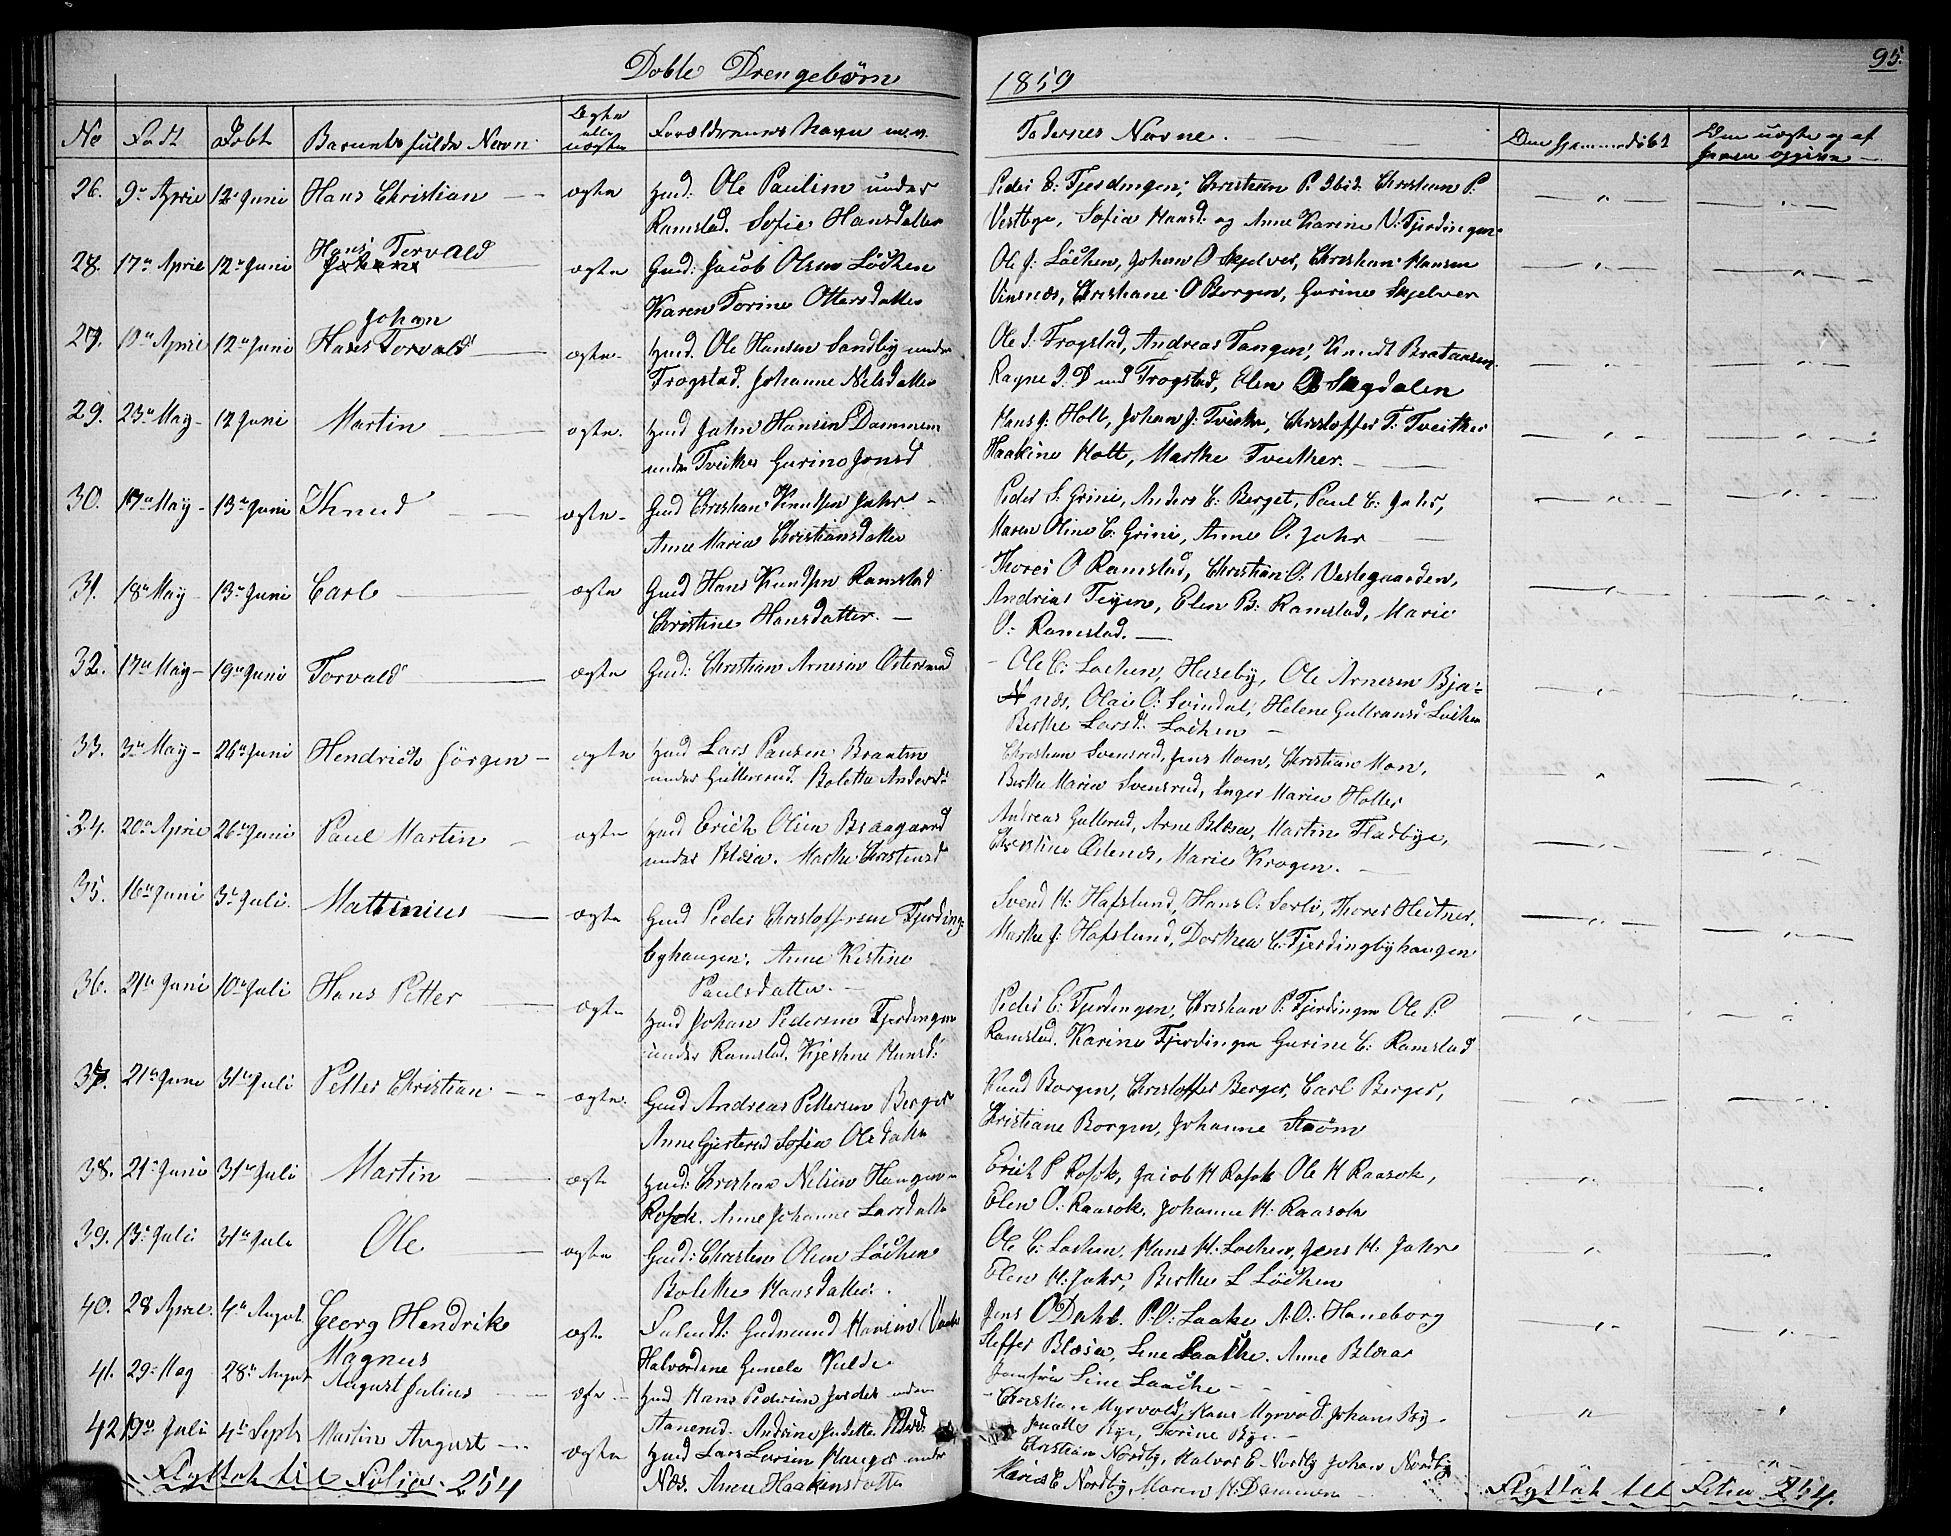 Døbte Drengebørn
1859
95.
No Født Døbt Barnets fulde Navn Ægte eller uægte Forældrenes Navn m.v. Faddernes Navne. Om hjemmedøbt
26. 9de April 12te Juni Hans Christian ægte Gmd: Ole Paulsen under
Ramstad. Sofie Hansdatter
Peder C: Fjerdingen, Christian P. Ibid. Christian P:
Vestbye, Sofie Hansd: og Anne Karine N: Fjerdingen
28. 17de April 12te Juni Hans Torvald ægte Gmd: Jacob Olsen Löchen
Karen Torine Ottersdatter
Ole J: Löchen, Johan O Skjelver, Christian Hansen
Vinsnæs, Christiane O Borgen, Gurine Skjelver
Johan
27. April 12te Juni Hans Torvald ægte Hmd. Ole Hansen Sandby under
Frogstad. Johanne Nilsdatter
Ole J. Frogstad, Andreas Tangen, Knudt Brataasen
Ragne J. D und Frogstad, Elen Sagdalen
29. 23de May 12 Juni Martin ægte. Hmd John Hansen Dammen
under Tveiter Gurine Jonsd
Hans J. Holt, Johan J: Tveiter, Christoffer T. Tveither
Haakine Holt, Marthe Tveither.
30. 17de May 13de Juni Knud ægte Gmd Christian Knudsen Jahr
Anne Marie Christiansdatter
Peder S. Grini, Anders C: Berget, Paul C: Jahr,
Maren Oline C: Grini, Anne O. Jahr
31. 18de May 13de Juni Carl ægte Gmd Hans Knudsen Ramstad
Christine Hansdatter.
Thorer O Ramstad, Christian O. Vestegaarden,
Andrias Teigen, Elen B: Ramstad, Marie
O: Ramstad.
32. 17de May 19de Juni Torvald ægte Gmd: Christian Arnesen
Ole C: Lochen, Huseby, Ole Arnesen Bja=
næs, Olai O: Svindal, Helene Gulbransd Lochen
Berthe Larsd: Lochen
33. 3de May 26de Juni Hendrich Jörgen ægte Hmd Lars Braaten
under Gullerud. Bolette Andersd:
Christian Svensrud, Jens Moen, Christian Moen,
Berthe Marie Svensrud, Inger Marie Holter
34. 20de April 26de Juni Paul Martin ægte Hmd Erich Olsen Braagaard
under Blæsa. Marthe Christensd
Andreas Gullerud, Arne Blæsa, Martin Fladbye,
Christine Østensd, Marie Krogen.
35. 16de Juni 3de Juli. Mattinius ægte Gmd Peder Christoffersen Fjerding=
byhaugen. Anne Kistine
Paulsdatter.
Svend H: Hafslund, Hans O. Sorli, Thorer Heitner,
Marthe J: Hafslund, Dorthea C. Fjerdingbyhaugen
36. 21de Juni 10de Juli Hans Petter ægte Hmd Johan Pedersen Fjerdingen
under Ramstad. Kjestine Hansd:
Peder C: Fjerdingen, Christian P. Fjerdingen Ole P.
Ramstad. Karine Fjerdingen Gurine C: Ramstad
37. 21de Juni 31te Juli Petter Christian ægte. Gmd Andreas Pettersen Berger
Anne Gjertrud Sofie Olsdatter
Knud Borgen, Christoffer Berger, Carl Berger,
Christiane Borgen, Johanne Strøm
38. 21de Juni 31te Juli Martin ægte Hmd: Christian Nilsen Haugen
Rosok. Anne Johanne Larsdatter
Erich P Rosok, Jacob H Rosok Ole H Raasok,
Elen O. Raasok. Johanne H. Raasok
39. 13de Juli 31te Juli Ole ægte Gmd: Christen Olsen Löchen
Bolethe Hansdatter.
Ole C. Lochen, Hans H: Lochen, Jens H. Jahr
Elen H: Jahr, Berthe L Löchen
40. 28 April 4de August. Georg Hendrik
Magnus ægte Gudmund Hansen
Halvordine Gunele Kulde
Jens O Dahl. P.O: Laake, A.O: Haneborg
Steffer Blæsa, Line Laathe. Anne Blæsa
Jomfrue Line Laache
41. 29de May 28de August August Julius ægte Hmd Hans Pedersen under
Christian Myrvold, Hans Myrvold Johans Bye
Bye, Torine Bye.
42 19de Juli 4de Septb Martin August ægte Hmd Lars Larsen Hauger under
Næs. Anne Haakensdatter
Christian Nordby, Halvor E. Nordby Johan Nordby
Maria E Nordby, Maren H: Dammen
Flyttet til Folio. 254
Flyttet til Folio 254.